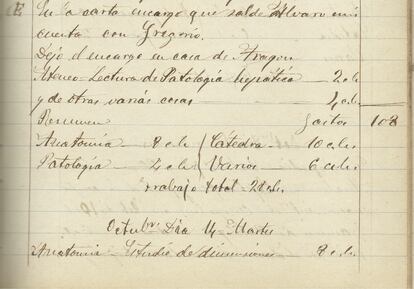 En la carta encargo que salde Alvaro mi
cuenta con Gregorio.
Dejo el encargo en casa de Aragon
Ateneo - Lectura de Patología hepática — 2
y de otras varias cosas — 4
Resumen Gastos 108
Anatomía 8 Cátedra - 10
Patología 4 Varios - 6
Trabajo total -
Octubre Dia 14 - Martes
Anatomia - Estudio de dimensiones 8